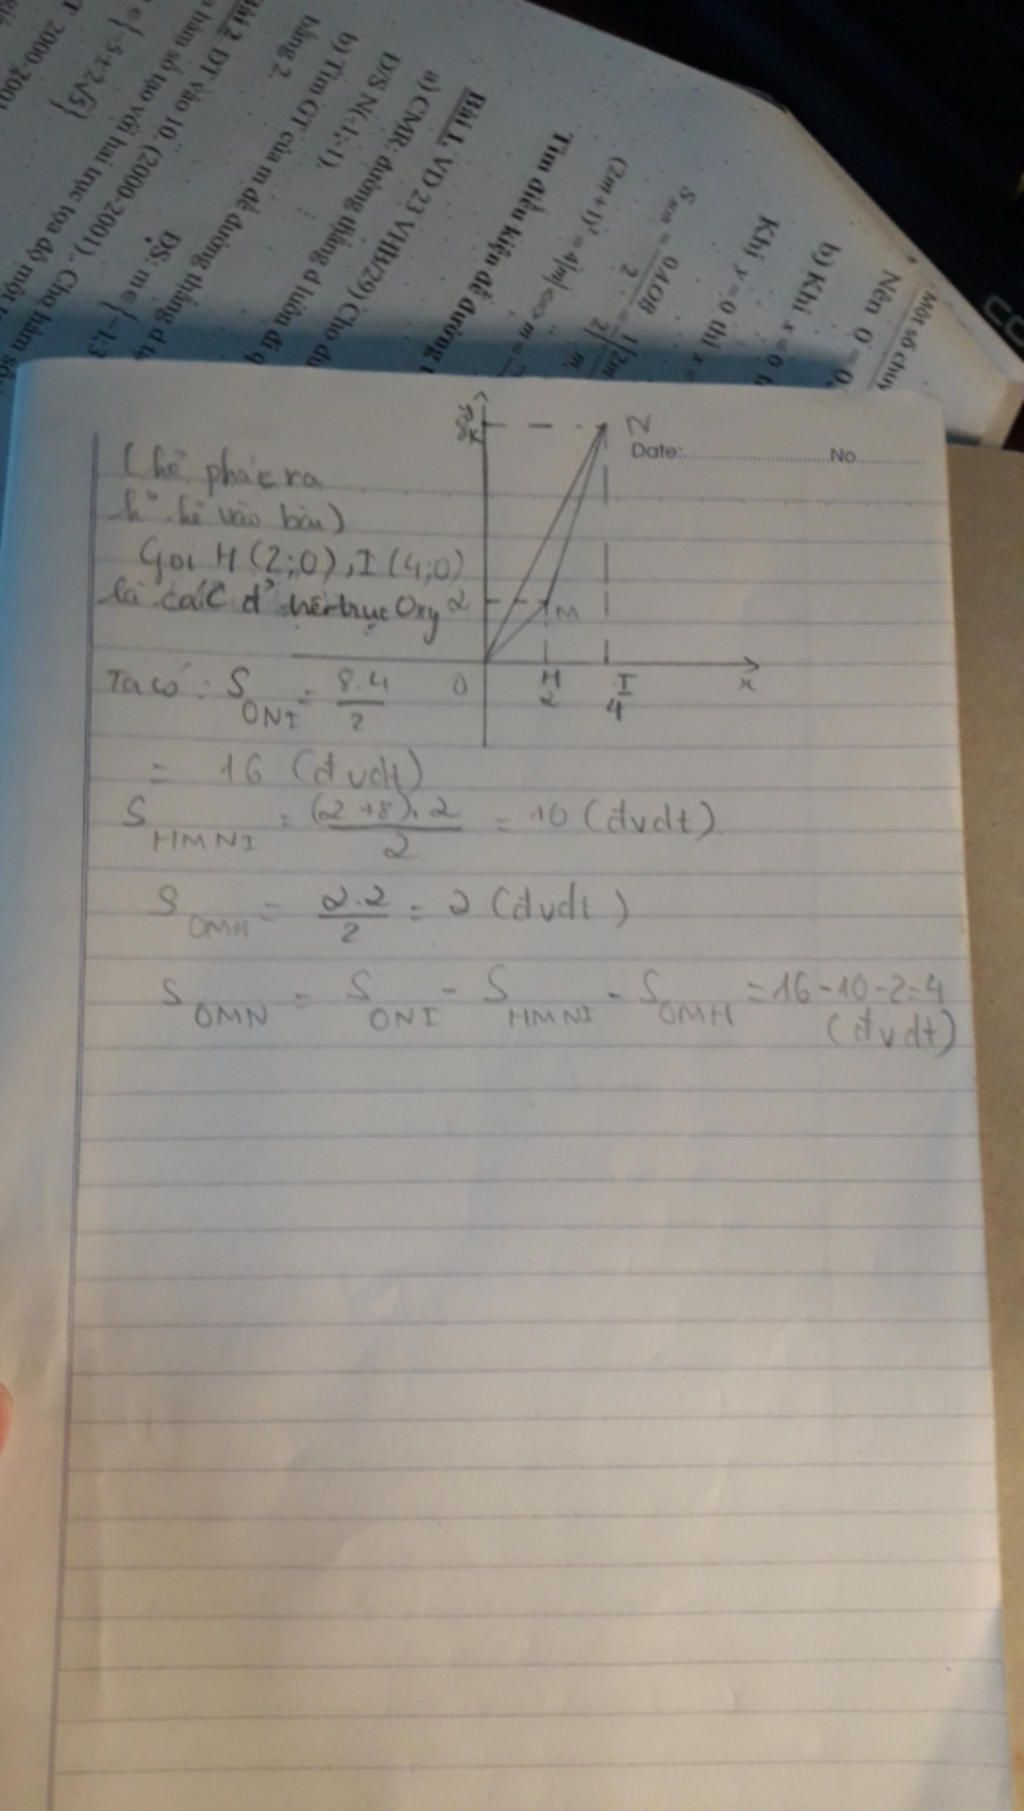 Một số chuy
Nên 0 = 0
b) Khi x = 0 t
Khi y = 0 thì x =
= OA.OB / 2 = 1/2 |2m
(2m+1)² = 4|m| <=> m =
Tìm điều kiện để đường t
Bài 1. VD 23 VHB/29) Cho đư
a) CMR: đường thẳng d luôn đi q
D/S N(-1;-1).
b) Tìm GT của m để đường thẳng d t
bằng 2.
ĐS: m ∈ {-1;3
Bài 2. DT vào 10. (2000-2001). Cho hàm số
hàm số tạo với hai trục tọa độ một t
∈ {-5±2√5}
T 2000-200
Date: No
N
8
vào bài)
Gọi H(2;0), I(4;0)
là các trục Oxy
2
M
O
H
2
I
4
x
Ta có: S ONI = 8.4 / 2
= 16 (đvdt)
S HMNI = (2+8).2 / 2 = 10 (đvdt)
S OMH = 2.2 / 2 = 2 (đvdt)
S OMN = S ONI - S HMNI - S OMH = 16-10-2=4
(đvdt)